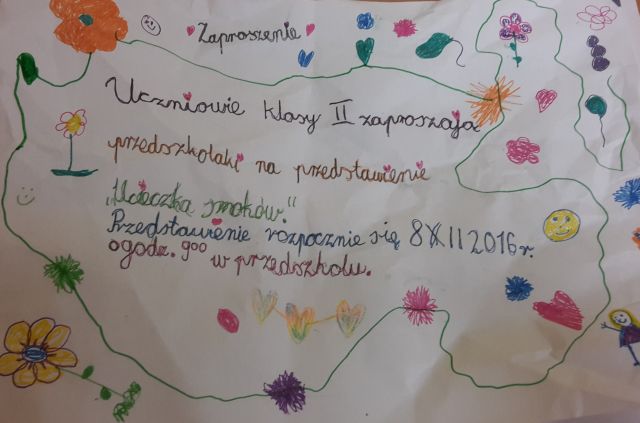 Zaproszenie
Uczniowie klasy II zapraszają
przedszkolaki na przedstawienie
„Ucieczka smoków."
Przedstawienie rozpocznie się 8 XII 2016 r.
o godz. 9⁰⁰ w przedszkolu.